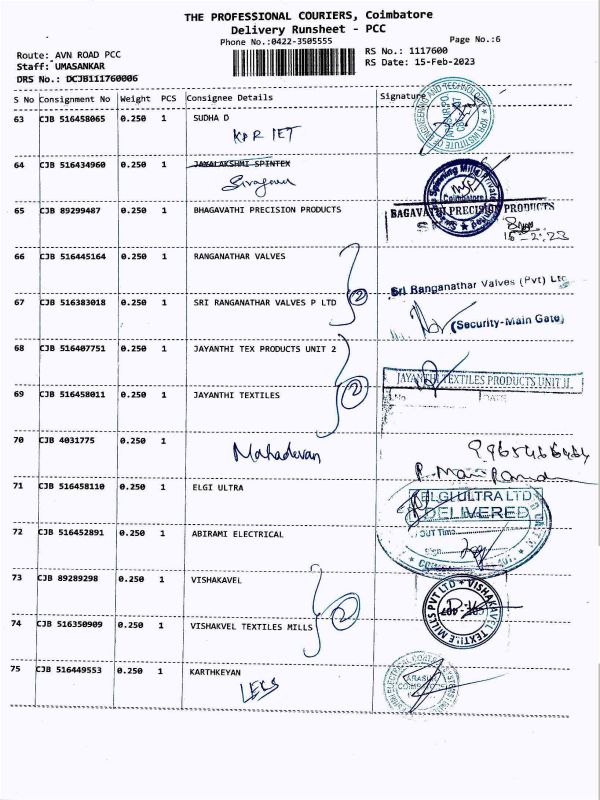 THE PROFESSIONAL COURIERS, Coimbatore
Delivery Runsheet - PCC
Phone No.:0422-3505555
Page No.:6
Route: AVN ROAD PCC
RS No.: 1117600
Staff: UMASANKAR
RS Date: 15-Feb-2023
DRS No.: DCJB111760006
S No Consignment No Weight PCS Consignee Details Signature
63 CJB 516458065 0.250 1 SUDHA D
KPR IET
64 CJB 516434960 0.250 1 JAYALAKSHMI SPINTEX
Coimbatore
65 CJB 89299487 0.250 1 BHAGAVATHI PRECISION PRODUCTS
BAGAVATHI PRECISION PRODUCTS
15-2-23
66 CJB 516445164 0.250 1 RANGANATHAR VALVES
Sri Ranganathar Valves (Pvt) Ltd
67 CJB 516383018 0.250 1 SRI RANGANATHAR VALVES P LTD 2
(Security-Main Gate)
68 CJB 516407751 0.250 1 JAYANTHI TEX PRODUCTS UNIT 2
JAYANTHI TEXTILES PRODUCTS UNIT II
69 CJB 516458011 0.250 1 JAYANTHI TEXTILES 2
DATE
70 CJB 4031775 0.250 1
Mahadevan
71 CJB 516458110 0.250 1 ELGI ULTRA
ELGI ULTRA LTD
DELIVERED
OUT Time
Sign
72 CJB 516452891 0.250 1 ABIRAMI ELECTRICAL
73 CJB 89289298 0.250 1 VISHAKAVEL
VISHAKAVEL TEXTILE MILLS PVT LTD
2
74 CJB 516350909 0.250 1 VISHAKVEL TEXTILES MILLS
75 CJB 516449553 0.250 1 KARTHKEYAN